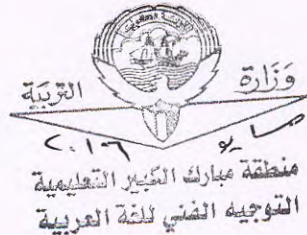 وزارة التربية
مايو ٢٠١٦
منطقة مبارك الكبير التعليمية
التوجيه الفني للغة العربية